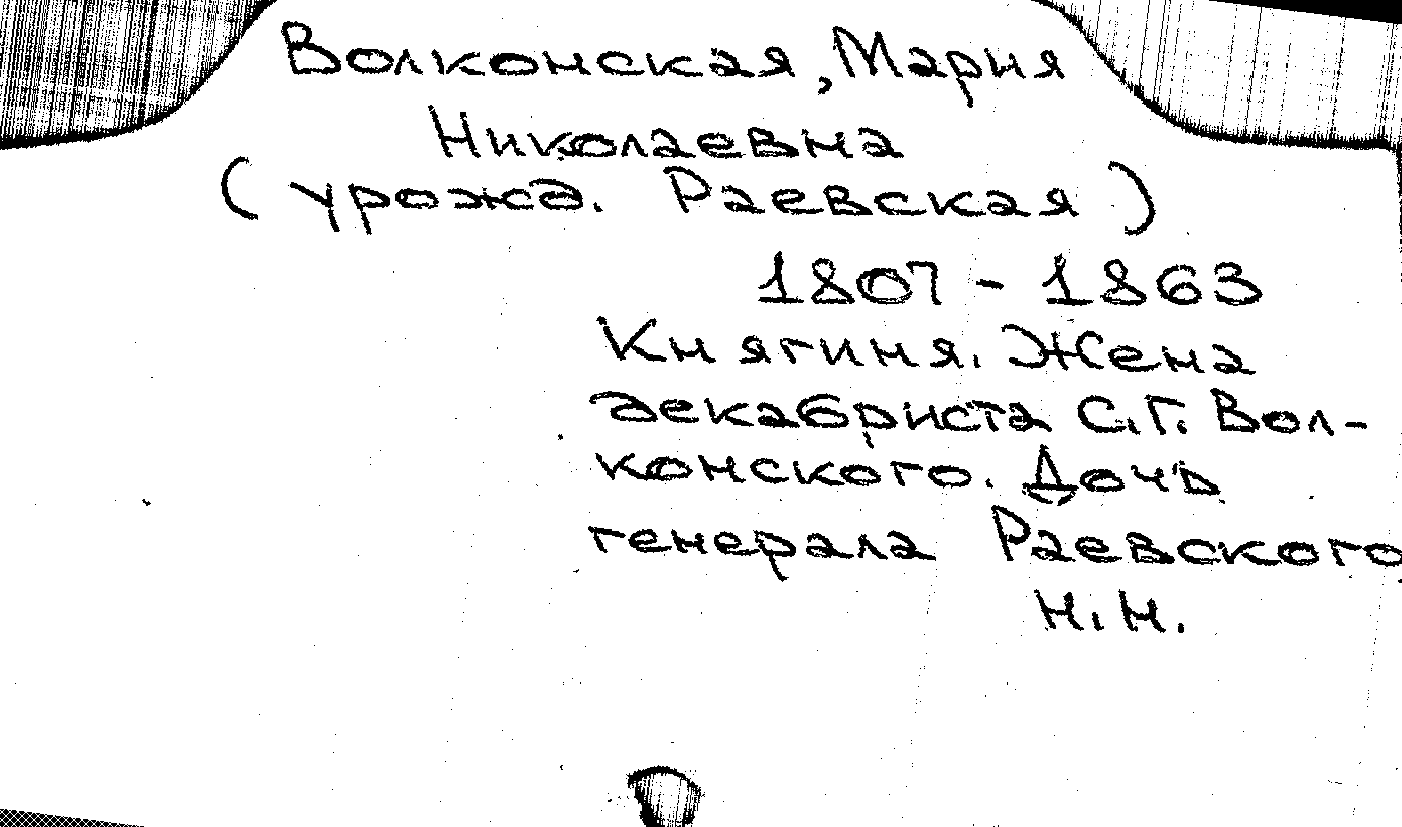 Волконская, Мария
Николаевна
(урожд. Раевская)
1807 - 1863
Княгиня. Жена
декабриста С.Г. Вол-
конского. Дочь
генерала Раевского
Н.Н.